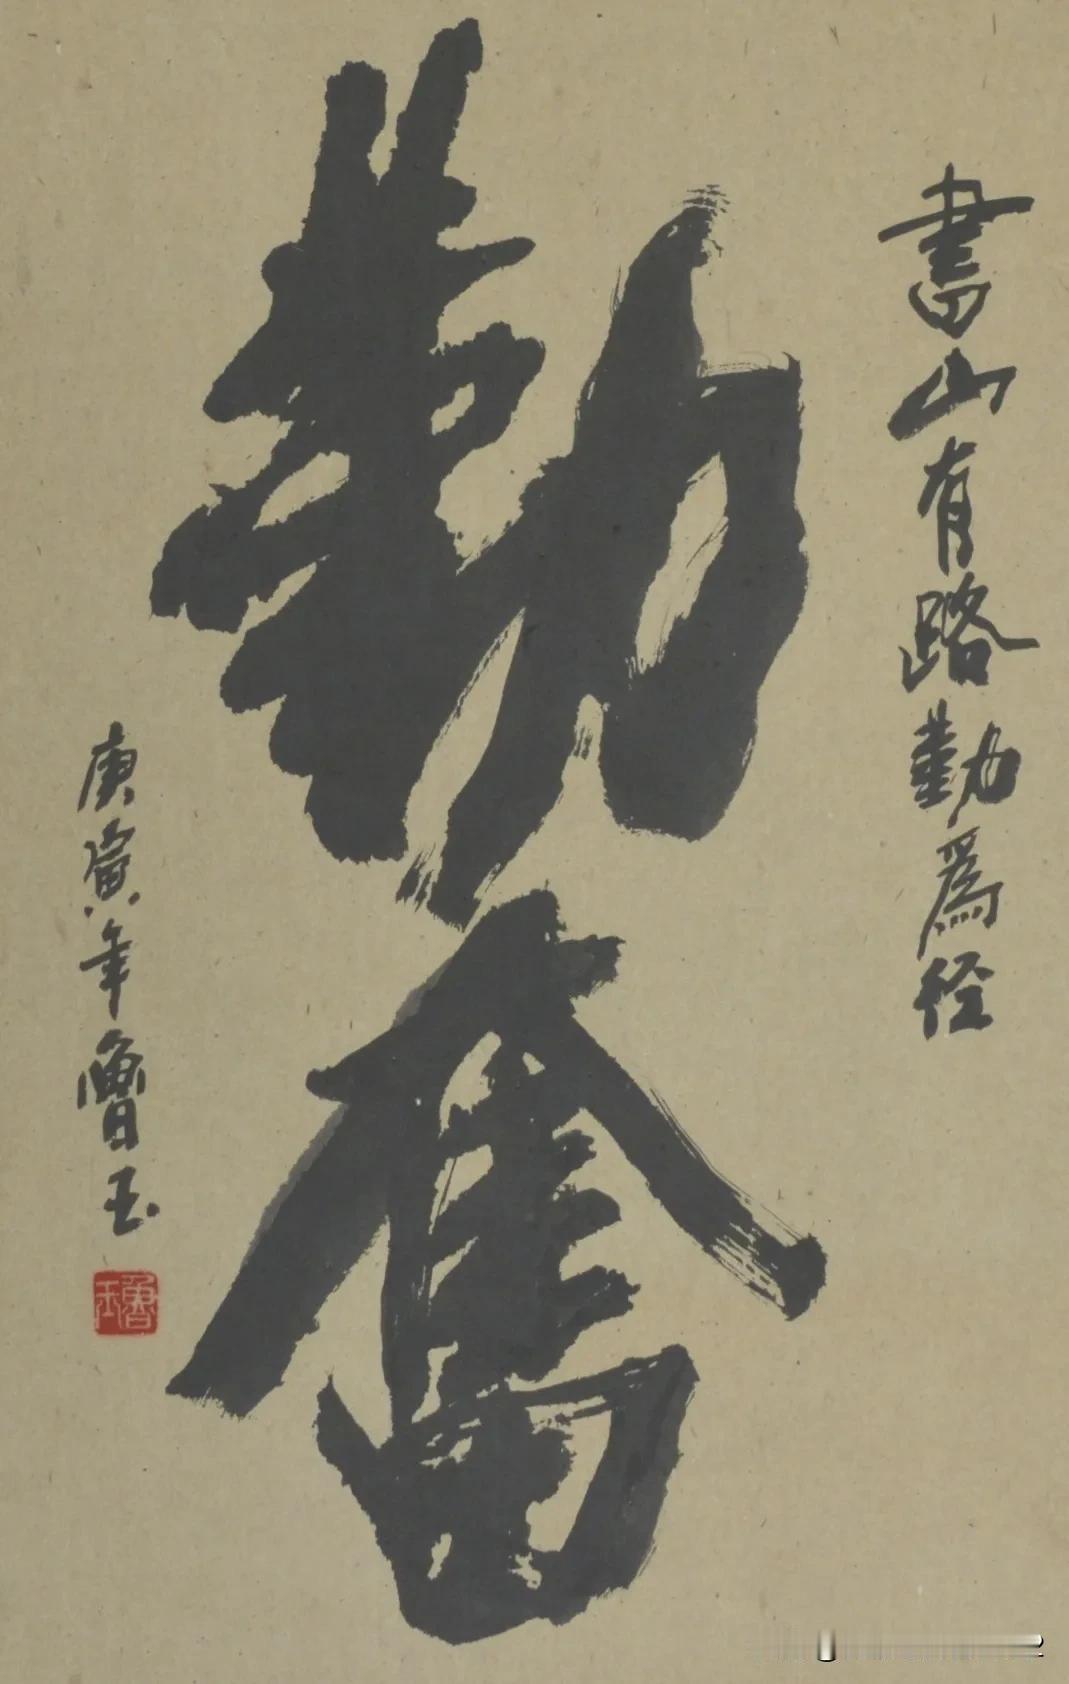 書山有路勤為径
勤奮
庚寅年魯玉
魯玉